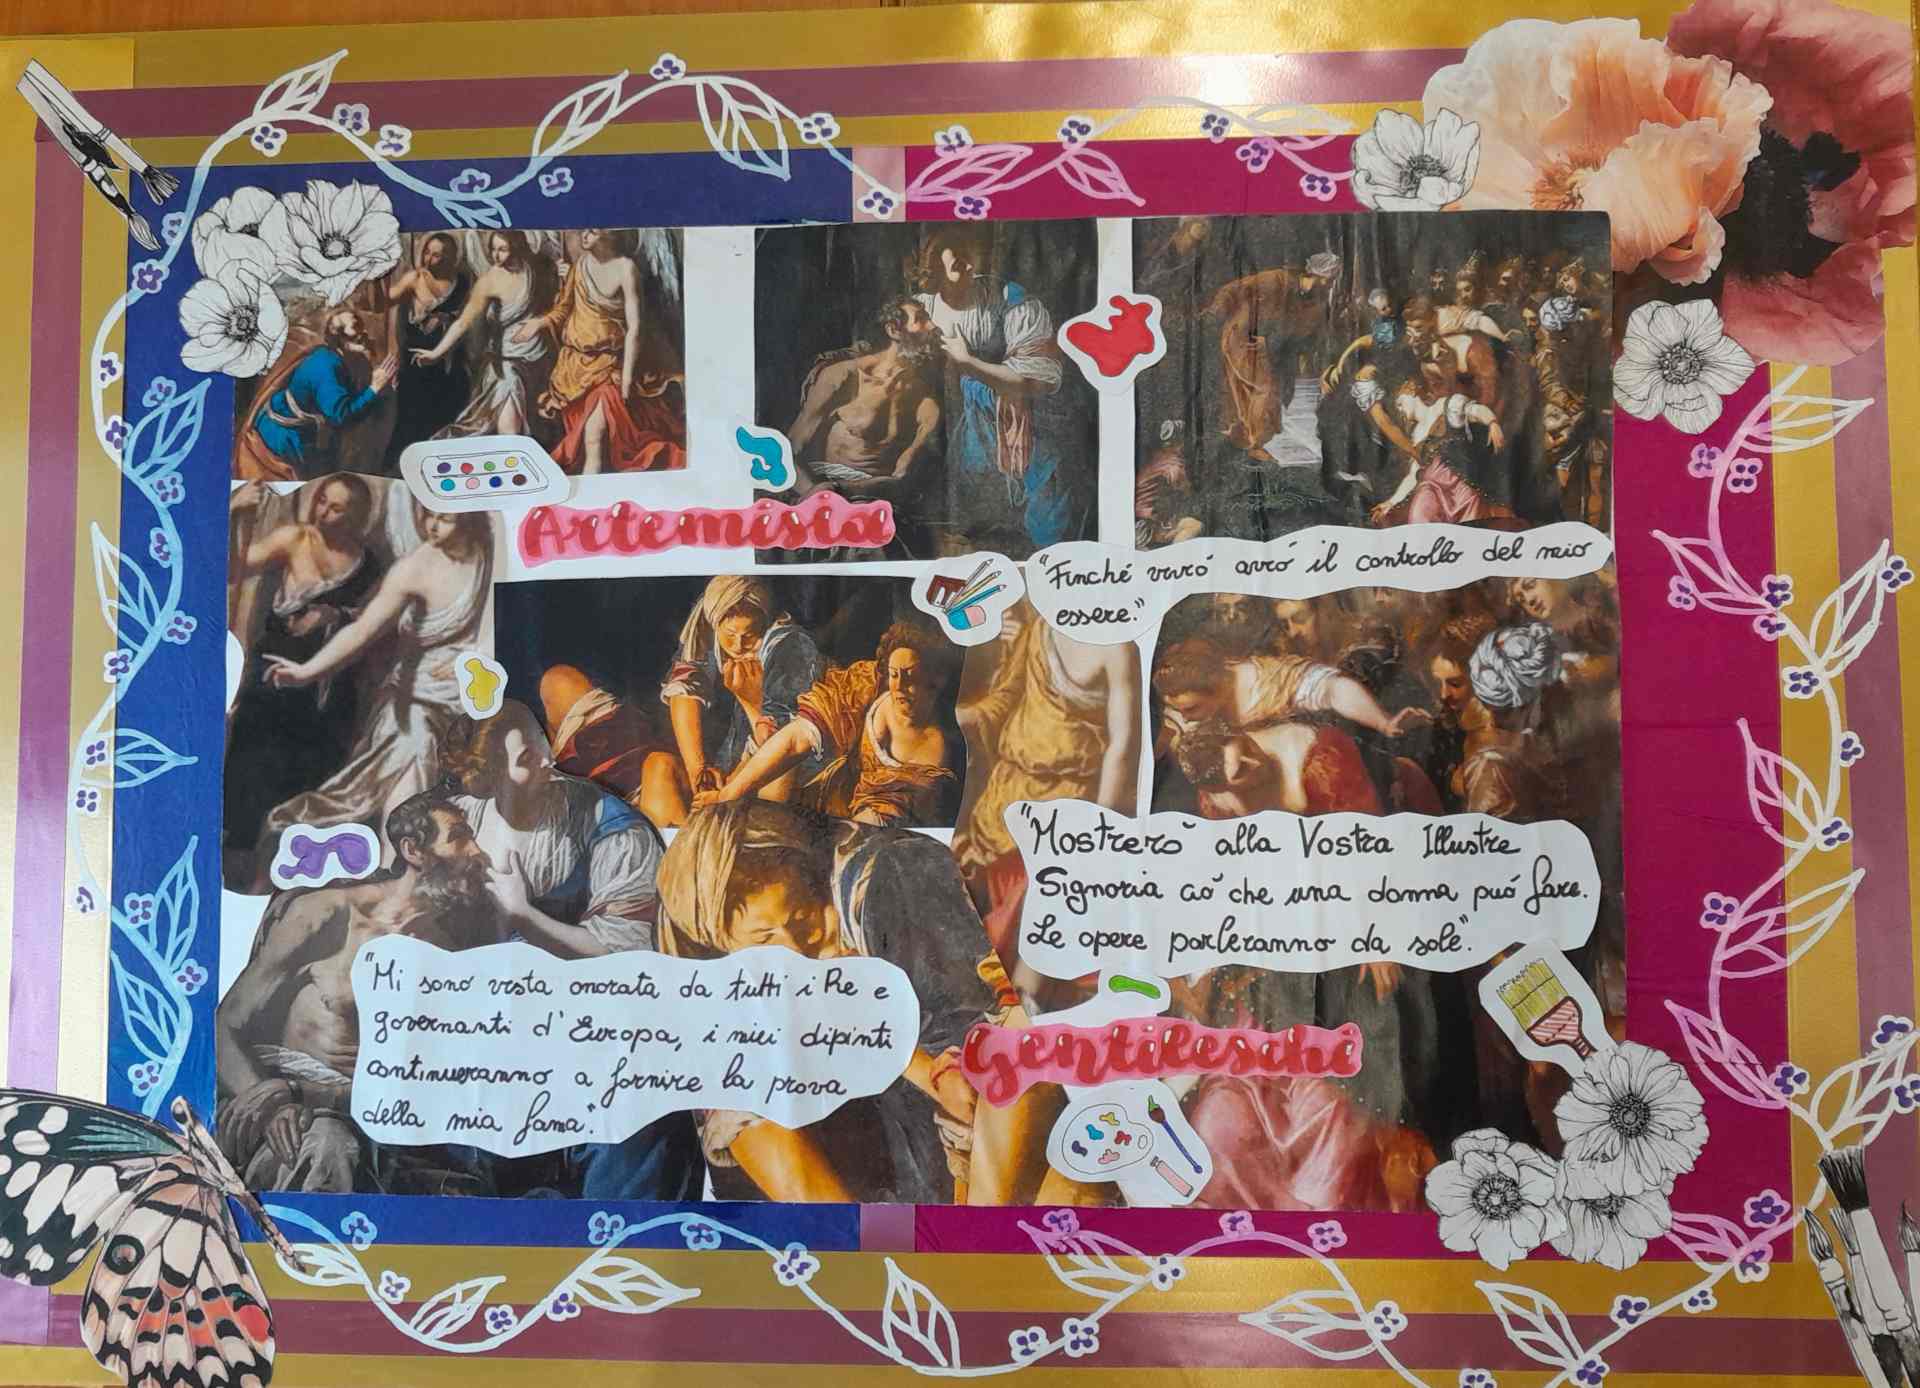 Artemisia
"Finché vivró avró il controllo del mio
essere."
"Mostreró alla Vostra Illustre
Signoria ció che una donna puó fare.
Le opere parleranno da sole".
"Mi sono vista onorata da tutti i Re e
governanti d'Europa, i miei dipinti
continueranno a fornire la prova
della mia fama."
Gentileschi